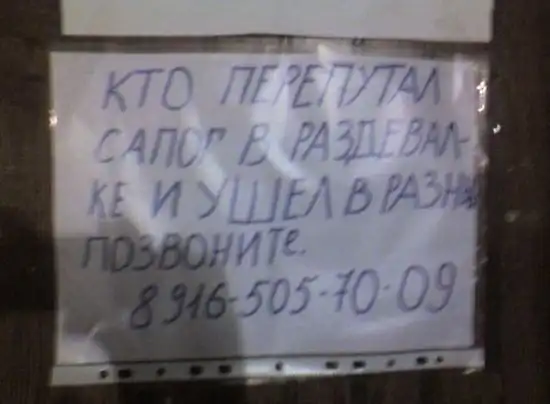 КТО ПЕРЕПУТАЛ
САПОГ В РАЗДЕВАЛ-
КЕ И УШЕЛ В РАЗНЫХ
ПОЗВОНИТЕ.
8916-505-70-09